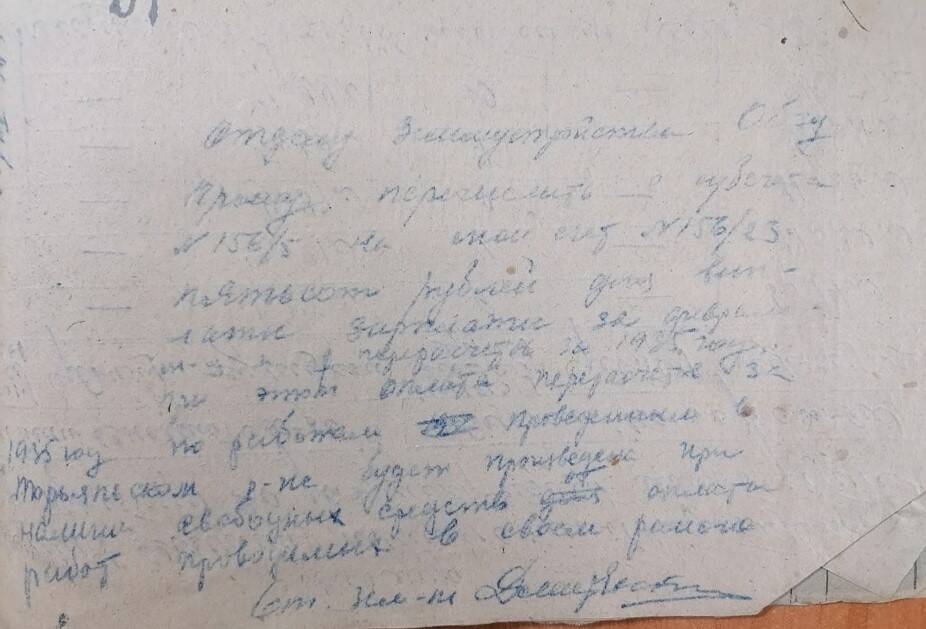 Отделу Землеустройства ОблЗУ
Прошу перечислить с субсчета
N 156/5 на мой счет N 156/23
пятьсот рублей для вып-
лати зарплати за
и перерасчеты за 1935 году.
при этом оплата перерасчета за
1935 году по работам проведенным в
Марьяновском р-не будет произведена при
наличии свободных средств от оплати
работ проводимых в своем районе
Ст. Зем-р